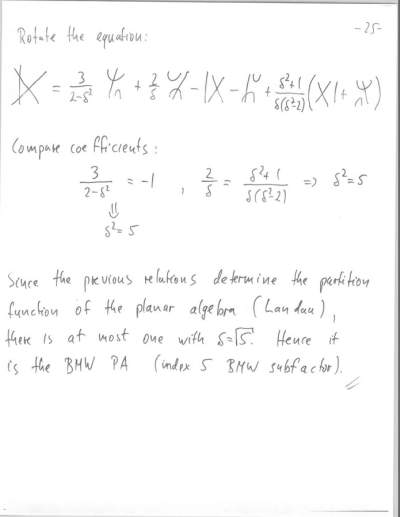 -25-
Rotate the equation:
= 3/(2-δ²) + 2/δ - - + (δ²+1)/(δ(δ²-2)) ( + )
Compare coefficients:
3/(2-δ²) = -1 , 2/δ = (δ²+1)/(δ(δ²-2)) => δ²=5
⇓
δ²=5
Since the previous relations determine the partition
function of the planar algebra (Landau),
there is at most one with δ=√5. Hence it
is the BMW PA (index 5 BMW subfactor).